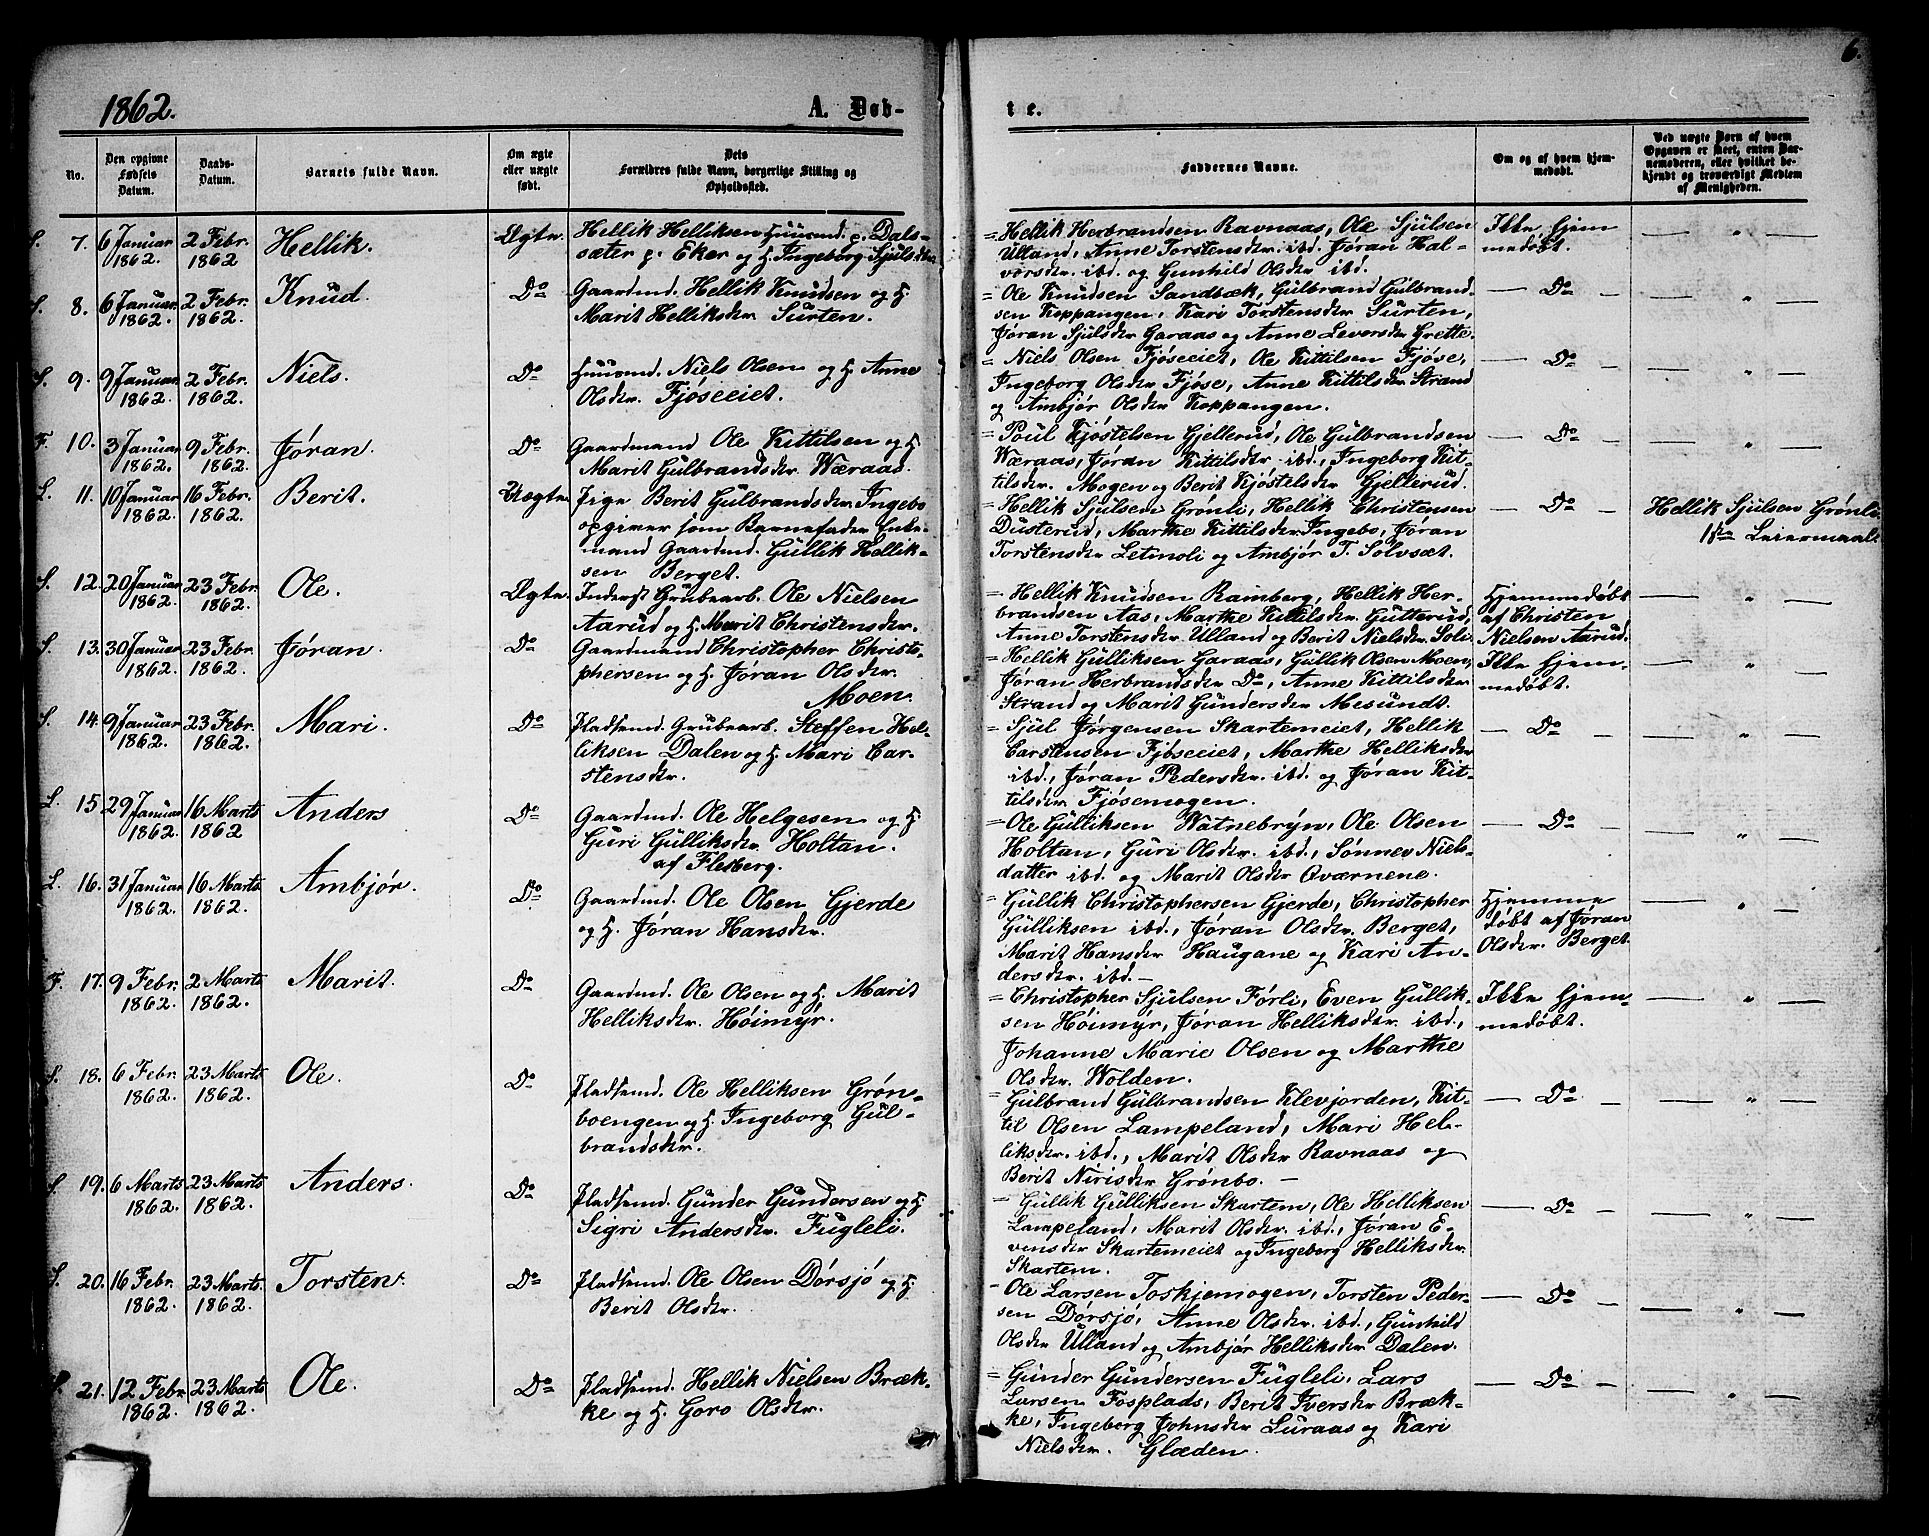 6.
1862.
A. Døb-
te.
No.
Den opgivne Fødsels Datum.
Daabs-Datum.
Barnets fulde Navn.
Om ægte eller uægte født.
Dets Forældres fulde Navn, borgerlige Stilling og Opholdssted.
Faddernes Navne.
Om og af hvem hjemmedøbt.
Ved uægte Børn af hvem Opgaven er skeet, enten Barnemoderen, eller hvilket bekjendt og troværdigt Medlem af Menigheden.
S. 7. 6 Januar 1862. 2 Febr. 1862 Hellik. Ægte.
Hellik Helliksen Huusmd. p. Dals-
sæter p. Eker og H. Ingeborg Sjulsdtr.
= Hellik Herbrandsen Ravnaas, Ole Sjulsen
Ulland, Anne Torstensdtr. ibd. Jøran Hal-
vorsdtr. ibd. og Gunhild Olsdtr ibd.
Ikke Hjem
medøbt.
— „ —
S. 8. 6 Januar 1862. 2 Febr. 1862. Knud. Do
Gaardmd. Hellik Knudsen og H.
Marit Helliksdtr Surten.
= Ole Knudsen Sandbæk, Gulbrand Gulbrand-
sen Koppangen, Kari Torstensdtr Surten,
Jøran Sjulsdtr Garaas og Anne Leversdtr Grette.
— Do —
— „ —
S. 9. 9 Januar 1862. 2 Febr. 1862. Niels. Do
Huusmd. Niels Olsen og H Anne
Olsdtr. Fjøseeiet.
= Niels Olsen Fjøseeiet, Ole Kittilsen Fjøse,
Ingeborg Olsdtr Fjøse, Anne Kittilsdtr Strand
og Ambjør Olsdtr Koppangen.
— Do —
— „ —
F. 10. 3 Januar 1862. 9 Febr. 1862. Jøran. Do
Gaardmand Ole Kittilsen og H
Marit Gulbrandsdtr. Wæraas.
= Poul Kjøstelsen Gjellerud, Ole Gulbrandsen
Wæraas, Jøran Kittilsdtr ibd., Ingeborg Kit-
tilsdtr. Mogen og Berit Kjøstelsdtr Gjellerud.
— Do —
— „ —
L. 11. 10 Januar 1862. 16 Febr. 1862. Berit. Uægte.
Pige Berit Gulbrandsdtr. Ingebo
opgiver som Barnefader Enke-
mand Gaardmd. Gullik Hellik-
sen Berget.
= Hellik Sjulsen Grønli, Hellik Christensen
Dusterud, Marthe Kittilsdtr Ingebo, Jøran
Torstensdtr Letmoli og Ambjør T. Solvsæt.
— Do —
Hellik Sjulsen Grønli.
1ste Leiermaal.
S. 12. 20 Januar 1862. 23 Febr. 1862. Ole. Ægte.
Inderst Grubearb. Ole Nielsen
Aarud og H. Marit Christensdtr.
= Hellik Knudsen Ramberg, Hellik Her-
brandsen Aas, Marthe Kittilsdtr Gutterud,
Anne Torstensdtr Ulland og Berit Nielsdtr Soli.
Hjemmedøbt
af Christen
Nielsen Aarud.
— „ —
S. 13. 30 Januar 1862. 23 Febr. 1862. Jøran. Do
Gaardmand Christopher Christo-
phersen og H. Jøran Olsdtr.
Moen.
= Hellik Gulliksen Garaas, Gullik Olsen Moen,
Jøran Herbrandsdtr Do, Anne Kittilsdtr
Strand og Marit Gundersdtr Mesundt.
Ikke Hjem-
medøbt.
— „ —
S. 14. 9 Januar 1862. 23 Febr. 1862. Mari. Do
Pladsemd. Grubearb. Steffen Hel-
liksen Dalen og H. Mari Car-
stensdtr.
= Sjul Jørgensen Skartemeiet, Hellik
Carstensen Fjøseeiet, Marthe Helliksdtr
ibd., Jøran Pedersdtr. ibd. og Jøran Kit-
tilsdtr Fjøsemogen.
— Do —
— „ —
L. 15. 29 Januar 1862. 16 Marts 1862 Anders Do
Gaardmd. Ole Helgesen og H
Guri Gulliksdtr Holtan.
af Flesberg.
= Ole Gulliksen Watnebryn, Ole Olsen
Holtan, Guri Olsdtr. ibd., Sønnev Niels-
datter ibd. og Marit Olsdtr Qværnene.
— Do —
— „ —
L. 16. 31 Januar 1862. 16 Marts 1862. Ambjør. Do
Gaardmd. Ole Olsen Gjerde
og H. Jøran Hansdtr.
= Gullik Christophersen Gjerde, Christopher
Gulliksen ibd., Jøran Olsdtr. Berget,
Marit Hansdtr Haugane og Kari An-
dersdtr. ibd. —
Hjemme
døbt af Jøran
Olsdtr. Berget.
— „ —
F. 17. 9 Febr. 1862. 2 Marts 1862. Marit. Do
Gaardmd. Ole Olsen og H. Marit
Helliksdtr. Høimyr.
= Christopher Sjulsen Førli, Even Gullik-
sen Høimyr, Jøran Helliksdtr. ibd.,
Johanne Marie Olsen og Marthe
Olsdtr. Wolden.
Ikke Hjem-
medøbt.
— „ —
S. 18. 6 Febr. 1862. 23 Marts 1862. Ole. Do
Pladsemd. Ole Helliksen Grøn-
boengen og H. Ingeborg Gul-
brandsdtr.
= Gulbrand Gulbrandsen Klevjorden, Kit-
til Olsen Lampeland, Mari Hel-
liksdtr. ibd., Marit Olsdtr Ravnaas og
Berit Nirisdtr Grønbo. —
— Do —
— „ —
S. 19. 6 Marts 1862. 23 Marts 1862. Anders. Do
Pladsemd. Gunder Gundersen og H
Sigri Andersdtr. Fugleli.
= Gullik Gulliksen Skartem, Ole Helliksen
Lampeland, Marit Olsdtr. ibd., Jøran E-
vensdtr Skartemeiet og Ingeborg Helliksdtr.
Skartem.
— Do —
— „ —
S. 20. 16 Febr. 1862. 23 Marts. 1862. Torsten. Do
Pladsemd. Ole Olsen Dørsjø og H.
Berit Olsdtr.
= Ole Larsen Toskjemogen, Torsten Peder-
sen Dørsjø, Anne Olsdtr. ibd., Gunhild
Olsdtr Ulland og Ambjør Helliksdtr Dalen.
— Do —
— „ —
S. 21. 12 Febr. 1862. 23 Marts 1862. Ole. Do
Pladsemd. Hellik Nielsen Bræk-
ke og H. Goro Olsdtr.
= Gunder Gundersen Fugleli, Lars
Larsen Fosplads, Berit Iversdtr Bræk-
ke, Ingeborg Johnsdtr Luraas og Kari
Nielsdtr. Glæden.
— Do —
— „ —